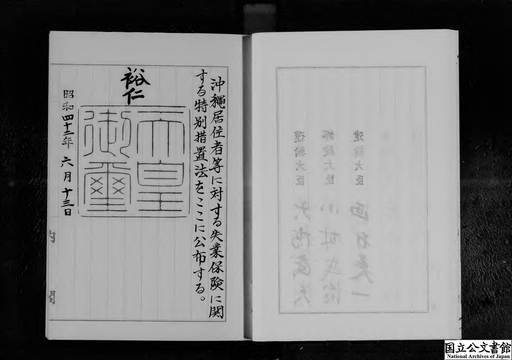 沖繩居住者等に対する失業保険に関
する特別措置法をここに公布する。
裕仁
天皇
御璽
昭和四十三年六月十三日
内閣
国立公文書館
National Archives of Japan